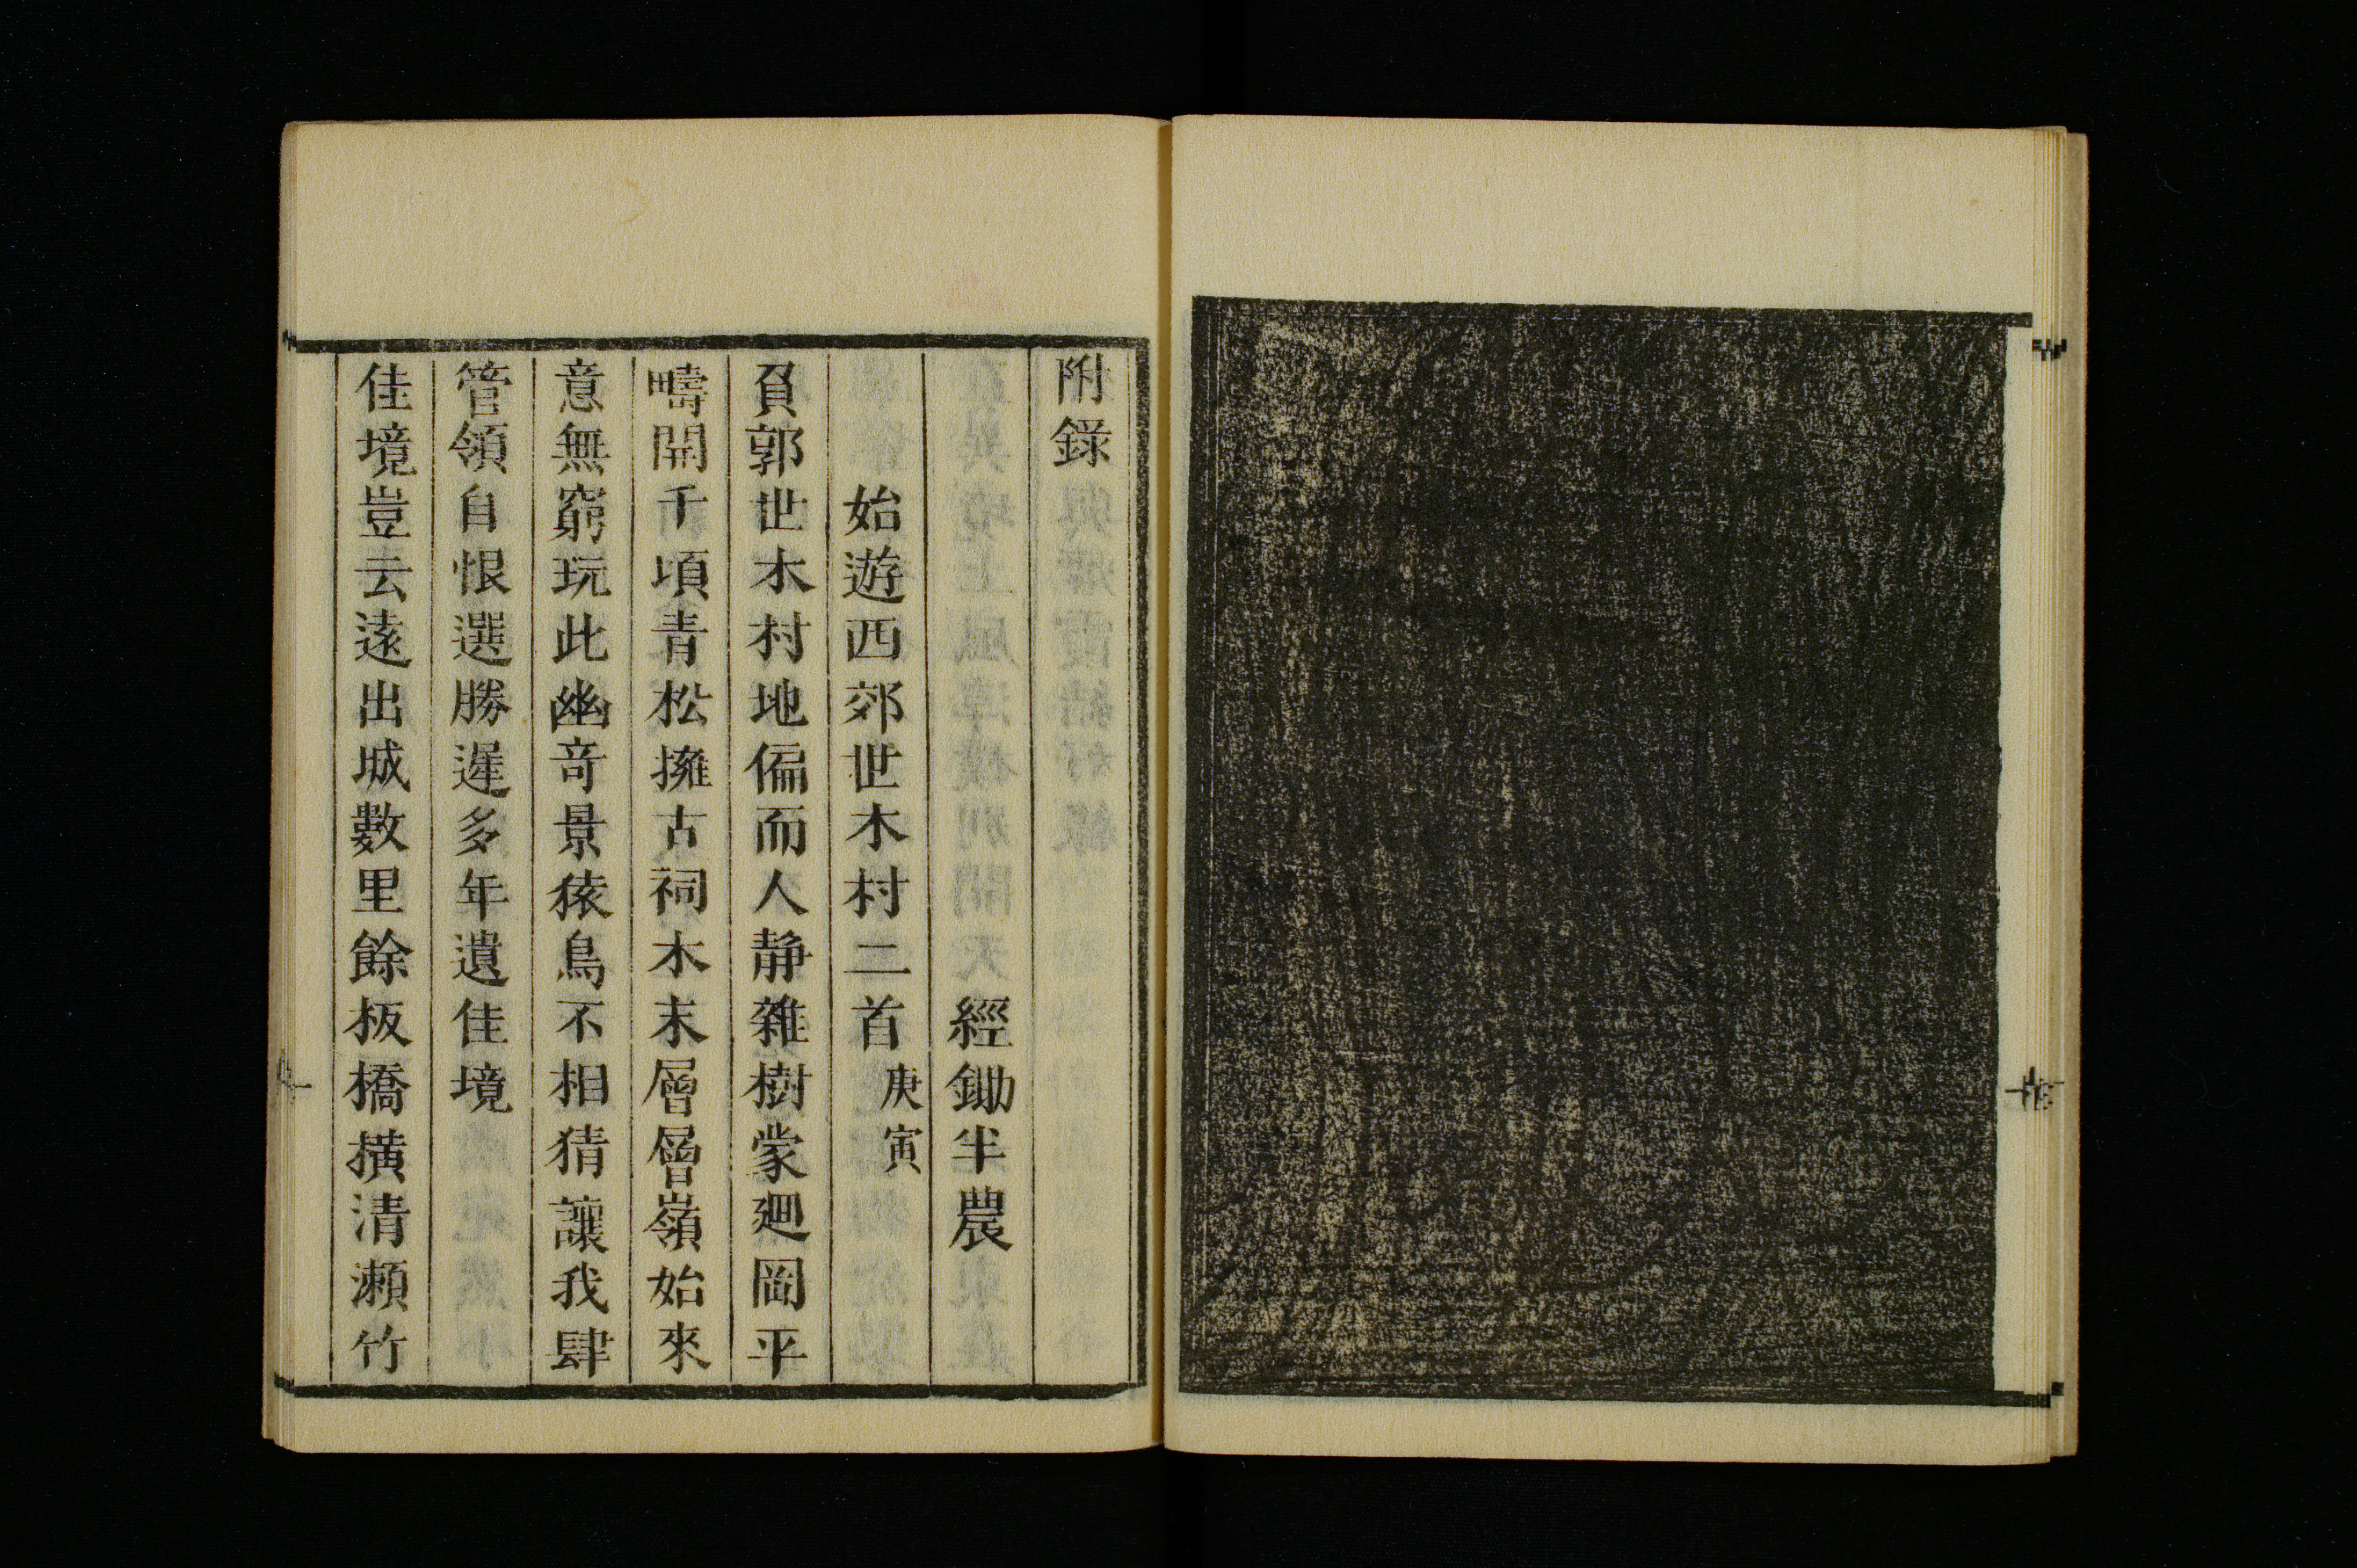 附錄
經鋤半農
始遊西郊世木村二首庚寅
負郭世木村地偏而人静雜樹蒙廻岡平
疇開千頃青松擁古祠木末層層嶺始來
意無窮玩此幽竒景猿鳥不相猜讓我肆
管領自恨選勝遲多年遺佳境
佳境豈云遠出城數里餘板橋横清瀬竹